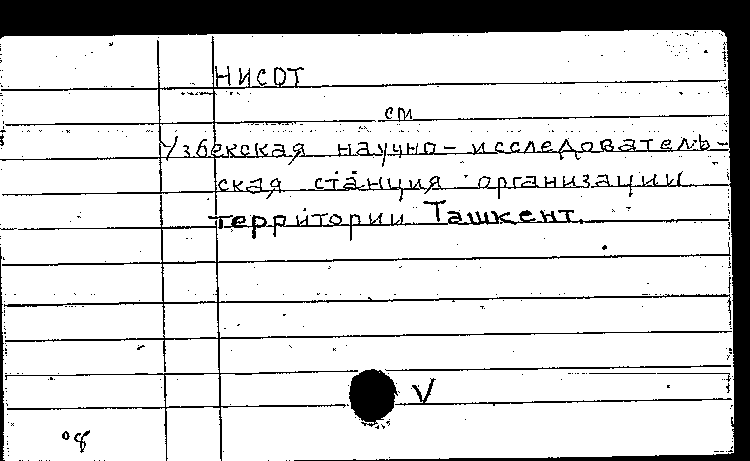 НИСОТ
см
Узбекская научно-исследователь-
ская станция организации
территории Ташкент.
V